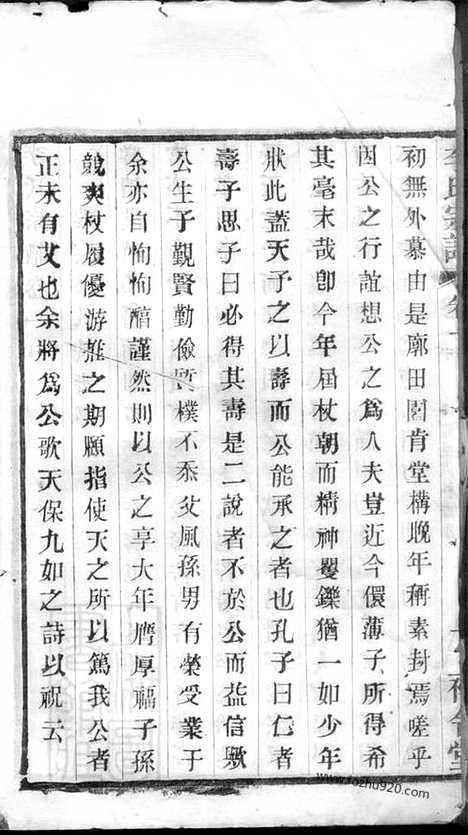 初無外慕由是廓田園肯堂構晚年稱素封焉嗟乎
因公之行誼想公之爲人夫豈近今儇薄子所得希
其毫末哉卽今年屆杖朝而精神矍鑠猶一如少年
狀此蓋天子之以壽而公能承之者也孔子曰仁者
壽子思子曰必得其壽是二說者不於公而益信歟
公生子覲賢勤儉質樸不忝父風孫男有榮受業于
余亦自恂恂醕謹然則以公之享大年膺厚福子孫
競爽杖履優游之期頤指使天之所以篤我公者
正未有艾也余將爲公歌天保九如之詩以祝云
李氏宗譜 卷一
www.fozhu920.com